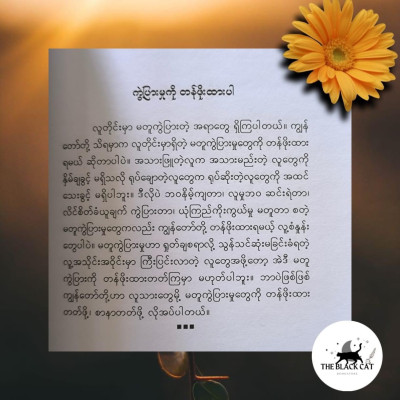 ကွဲပြားမှုကို တန်ဖိုးထားပါ
လူတိုင်းမှာ မတူကွဲပြားတဲ့ အရာတွေ ရှိကြပါတယ်။ ကျွန်
တော်တို့ သိရမှာက လူတိုင်းမှာရှိတဲ့ မတူကွဲပြားမှုတွေကို တန်ဖိုးထား
ရမယ် ဆိုတာပါပဲ။ အသားဖြူတဲ့လူက အသားမည်းတဲ့ လူတွေကို
နှိမ်ချခွင့် မရှိသလို ရုပ်ချောတဲ့လူတွေက ရုပ်ဆိုးတဲ့လူတွေကို အထင်
သေးခွင့် မရှိပါဘူး။ ဒီလိုပဲ ဘဝနိမ့်ကျတာ၊ လူမှုဘဝ ဆင်းရဲတာ၊
လိင်စိတ်ခံယူချက် ကွဲပြားတာ၊ ယုံကြည်ကိုးကွယ်မှု မတူတာ စတဲ့
မတူကွဲပြားမှုတွေကလည်း ကျွန်တော်တို့ တန်ဖိုးထားရမယ့် လူ့စံနှုန်း
တွေပါပဲ။ မတူကွဲပြားမှုဟာ ရှုတ်ချစရာလို့ သွန်သင်ဆုံးမခြင်းခံရတဲ့
လူ့အသိုင်းအဝိုင်းမှာ ကြီးပြင်းလာတဲ့ လူတွေအဖို့တော့ အဲဒီ မတူ
ကွဲပြားမှုကို တန်ဖိုးထားတတ်ကြမှာ မဟုတ်ပါဘူး။ ဘာပဲဖြစ်ဖြစ်
ကျွန်တော်တို့ဟာ လူသားတွေမို့ မတူကွဲပြားမှုတွေကို တန်ဖိုးထား
တတ်ဖို့၊ စာနာတတ်ဖို့ လိုအပ်ပါတယ်။
THE BLACK CAT